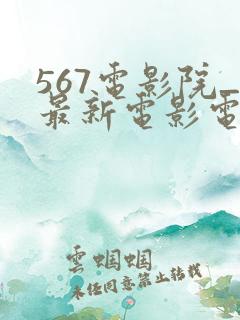 567電影院_
最新电影電
雲蝈蝈
未经同意禁止转载